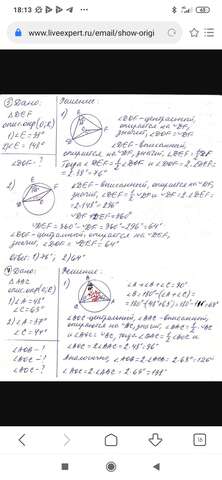 18:13
www.liveexpert.ru/email/show-origi
③ Дано:
Решение:
△DEF
опис.окр(O,R)
1) ∠E=38°
2) ∠E=148°
∠DOF-?
1)
∠DOF-центральный,
опирается на ◡DF,
значит, ∠DOF=◡DF
∠DEF-вписанный,
опирается на ◡DF, значит, ∠DEF=½◡DF
Тогда ∠DEF=½∠DOF и ∠DOF=2·∠DEF=
=2·38°=76°
2)
∠DEF-вписанный, опирается на ◡DF,
значит, ∠DEF=½◡DF и ◡DF=2·∠DEF=
=2·148°=296°
◡DF+◡DEF=360°
◡DEF=360°-◡DF=360°-296°=64°
∠DOF-центральный, опирается на ◡DEF,
значит, ∠DOF=◡DEF=64°
Ответ: 1) 76°; 2) 64°
④ Дано:
Решение:
△ABC
опис.окр(O,R)
1) ∠A=48°
∠C=63°
2) ∠A=37°
∠AOB-?
∠BOC-?
∠AOC-?
1)
∠BOC-центральный, ∠BAC-вписанный,
опираются на ◡BC, значит, ∠BAC=½◡BC
и ∠BOC=◡BC, тогда ∠BAC=½∠BOC и
∠BOC=2∠BAC=2·48°=96°
Аналогично, ∠AOB=2∠ACB=2·63°=126°